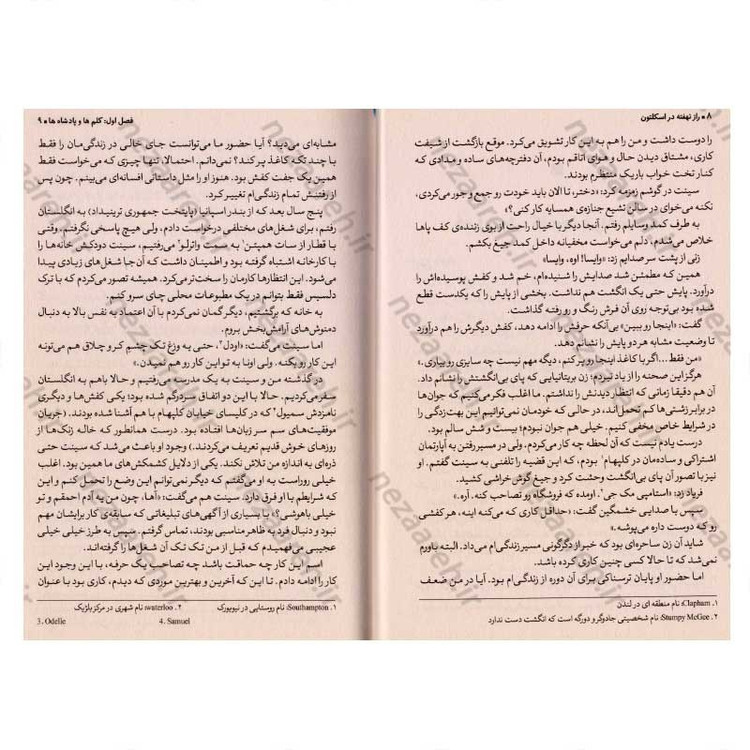 ۸ ● راز نهفته در اسکلتون
را دوست داشت و من را هم به این کار تشویق می‌کرد. موقع بازگشت از شیفت
کاری، مشتاق دیدن حال و هوای اتاقم بودم، آن دفترچه‌های ساده و مدادی که
کنار تخت خواب باریک منتظرم بودند.
سینت در گوشم زمزمه کرد: «دختر، تا الان باید خودت رو جمع و جور می‌کردی،
نکنه می‌خوای در سالن تشیع جنازه‌ی همسایه کار کنی؟»
به طرف کمد وسایلم رفتم. آنجا دیگر با خیال راحت از بوی زننده‌ی کف پاها
خلاص می‌شدم، دلم می‌خواست مخفیانه داخل کمد جیغ بکشم.
زنی از پشت سر صدایم زد: «وایسا! اوه، وایسا»
همین که مطمئن شد صدایش را شنیده‌ام، خم شد و کفش پوسیده‌اش را
درآورد. پایش حتی یک انگشت هم نداشت. بخشی از پایش را که یکدست قطع
شده بود بی‌توجه روی آن فرش رنگ و رو رفته گذاشت.
گفت: «اینجا رو ببین» بی‌آنکه حرفش را ادامه دهد، کفش دیگرش را هم درآورد
تا وضعیت مشابه هر دو پایش را نشانم دهد.
«من فقط... اگر با کاغذ اینجا رو پر کنم، دیگه مهم نیست چه سایزی رو بیاری.»
هرگز این صحنه را از یاد نبردم؛ زن بریتانیایی که پای بی‌انگشتش را نشانم داد.
آن هم دقیقا زمانی که انتظار دیدنش را نداشتم. ما اغلب فکر می‌کنیم که جوان‌ها
در برابر زشتی‌ها کم تحمل‌اند، در حالی که خودمان نمی‌توانیم این بهت‌زدگی را
در شرایط خاص مخفی کنیم. خیلی هم جوان نبودم؛ بیست و شش سالم بود.
درست یادم نیست که آن لحظه چه کار می‌کردم. ولی در مسیر رفتن به آپارتمان
اشتراکی و ساده‌مان در کلپهام¹ بودم، که این قضیه را تلفنی به سینت گفتم. او
نیز با تصور آن پای بی‌انگشت وحشت کرد و جیغ گوش خراشی کشید.
فریاد زد: «استامپی مک جی²، اومده که فروشگاه رو تصاحب کنه. آره.»
سپس با صدایی خشمگین گفت: «حداقل کاری که می‌کنه اینه، هر کفشی
رو که دوست داره می‌پوشه.»
شاید آن زن ساحره‌ای بود که خبر از دگرگونی مسیر زندگی‌ام می‌داد. البته باورم
نمی‌شد که تا حالا کسی چنین کاری کرده باشد.
اما حضور او پایان ترسناکی برای آن دوره از زندگی‌ام بود. آیا در من ضعف
۱. Clapham: نام منطقه ای در لندن
۲. Stumpy McGee: نام شخصیتی جادوگر و دورگه است که انگشت دست ندارد
فصل اول: کلم ها و پادشاه ها ● ۹
مشابه‌ای می‌دید؟ آیا حضور ما می‌توانست جای خالی در زندگی‌مان را فقط
با چند تکه کاغذ پر کند؟ نمی‌دانم. احتمالا، تنها چیزی که می‌خواست فقط
همین یک جفت کفش بود. هنوز او را مثل داستانی افسانه‌ای می‌بینم. چون پس
از رفتنش تمام زندگی‌ام تغییر کرد.
پنج سال بعد که از بندر اسپانیا (پایتخت جمهوری ترینیداد) به انگلستان
رفتم، برای شغل‌های مختلفی درخواست دادم، ولی هیچ پاسخی نگرفتم. وقتی
با قطار از سات همپتن¹ به سمت واترلو² می‌رفتیم، سینت دودکش خانه‌ها را
با کارخانه اشتباه گرفته بود و اطمینان داشت که آن‌جا شغل‌های زیادی پیدا
می‌شود. این انتظارها کارمان را سخت‌تر می‌کرد. همیشه تصور می‌کردم که با ترک
دلسیس فقط بتوانم در یک مطبوعات محلی چای سرو کنم.
به خانه که برگشتیم، دیگر گمان نمی‌کردم با آن اعتماد به نفس بالا به دنبال
دمنوش‌های آرامش‌بخش بروم.
اما سینت می‌گفت: «اودل³، حتی یه وزغ تک چشم کر و چلاق هم می‌تونه
این کار رو بکنه. ولی اونا به تو این کار رو هم نمیدن.»
در گذشته من و سینت به یک مدرسه می‌رفتیم و حالا باهم به انگلستان
سفر می‌کردیم. حالا با این دو اتفاق سردگم شده بود؛ یکی کفش‌ها و دیگری
نامزدش سمیول⁴ که در کلیسای خیابان کلپهام با هم آشنا شده بودند. (جریان
موفقیت‌های سم سر زبان‌ها افتاده بود. درست همانطور که خاله زنک‌ها از
روزهای خوش قدیم تعریف می‌کردند.) وجود او باعث می‌شد که سینت حتی
ذره‌ای به اندازه من تلاش نکند. یکی از دلایل کشمکش‌های ما همین بود. اغلب
خیلی روراست به او می‌گفتم که دیگر نمی‌توانم این وضع را تحمل کنم و این
که شرایطم با او فرق دارد. سینت هم می‌گفت: «آها، چون من یه آدم احمقم و تو
خیلی باهوشی؟» با بسیاری از آگهی‌های تبلیغاتی که سابقه‌ی کار برایشان مهم
نبود و دنبال فرد به ظاهر مناسبی بودند، تماس گرفتم. سپس به طرز خیلی خیلی
عجیبی می‌فهمیدم که قبل از من تک تک آن شغل‌ها را گرفته‌اند.
اسم این کار چه حماقت باشد چه تصاحب یک حرفه، با این وجود این
کار را ادامه دادم. تا این که آخرین و بهترین موردی که دیدم، کاری بود با عنوان
۱. Southampton: نام روستایی در نیویورک ۲. waterloo: نام شهری در مرکز بلژیک
3. Odelle 4. Samuel
nezaareh.ir